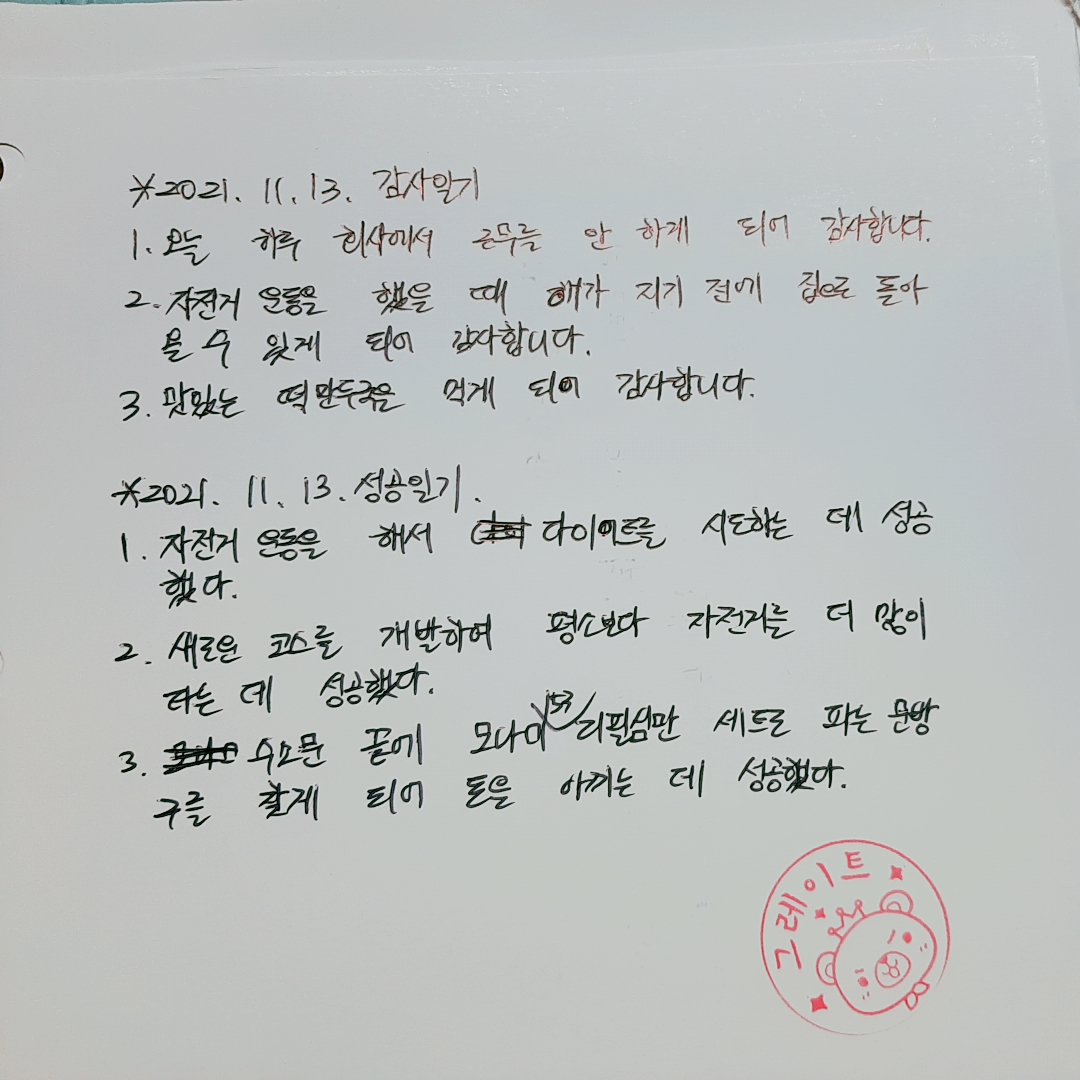 ※2021. 11. 13. 감사일기
1. 오늘 하루 회사에서 근무를 안 하게 되어 감사합니다.
2. 자전거 운동을 했을 때 해가 지기 전에 집으로 돌아
올 수 있게 되어 감사합니다.
3. 맛있는 떡만두국을 먹게 되어 감사합니다.
※2021. 11. 13. 성공일기.
1. 자전거 운동을 해서 다이어트를 시도하는 데 성공
했다.
2. 새로운 코스를 개발하여 평소보다 자전거를 더 많이
타는 데 성공했다.
3. 수소문 끝에 모나미 153 리필심만 세트로 파는 문방
구를 찾게 되어 돈을 아끼는 데 성공했다.
그레이트